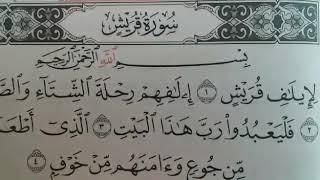 سُورَةُ قُرَيْشٍ
بِسْمِ اللَّهِ الرَّحْمَٰنِ الرَّحِيمِ
لِإِيلَٰفِ قُرَيْشٍ ١ إِۦلَٰفِهِمْ رِحْلَةَ الشِّتَآءِ
٢ فَلْيَعْبُدُوا۟ رَبَّ هَٰذَا الْبَيْتِ ٣ الَّذِىٓ
مِّن جُوعٍ وَءَامَنَهُم مِّنْ خَوْفٍۭ ٤